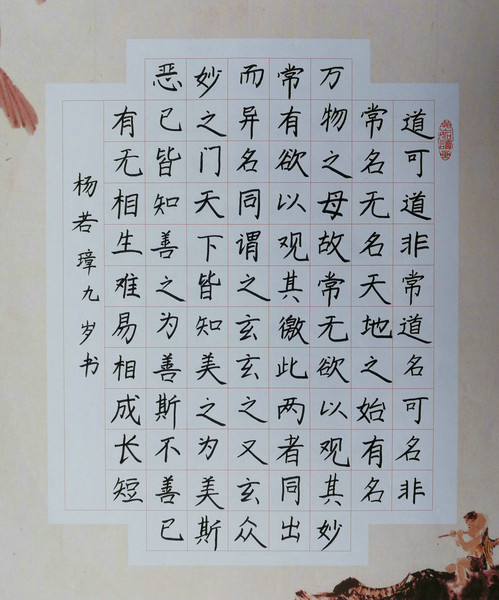 道可道非常道名可名非
常名无名天地之始有名
万物之母故常无欲以观其妙
常有欲以观其徼此两者同出
而异名同谓之玄玄之又玄众
妙之门天下皆知美之为美斯
恶已皆知善之为善斯不善已
有无相生难易相成长短
杨若璋九岁书